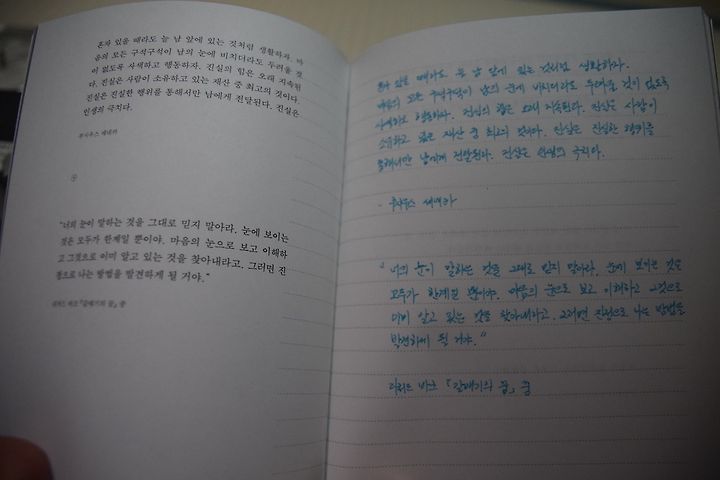 혼자 있을 때라도 늘 남 앞에 있는 것처럼 생활하자. 마
음의 모든 구석구석이 남의 눈에 비치더라도 두려울 것
이 없도록 사색하고 행동하자. 진실의 힘은 오래 지속된
다. 진실은 사람이 소유하고 있는 재산 중 최고의 것이다.
진실은 진실한 행위를 통해서만 남에게 전달된다. 진실은
인생의 극치다.
루시우스 세네카
"너의 눈이 말하는 것을 그대로 믿지 말아라. 눈에 보이는
것은 모두가 한계일 뿐이야. 마음의 눈으로 보고 이해하
고 그것으로 이미 알고 있는 것을 찾아내라고. 그러면 진
정으로 나는 방법을 발견하게 될 거야."
리처드 바크 『갈매기의 꿈』 중
혼자 있을 때라도 늘 남 앞에 있는 것처럼 생활하자.
마음의 모든 구석구석이 남의 눈에 비치더라도 두려울 것이 없도록
사색하고 행동하자. 진실의 힘은 오래 지속된다. 진실은 사람이
소유하고 있는 재산 중 최고의 것이다. 진실은 진실한 행위를
통해서만 남에게 전달된다. 진실은 인생의 극치다.
- 루시우스 세네카
"너의 눈이 말하는 것을 그대로 믿지 말아라. 눈에 보이는 것은
모두가 한계일 뿐이야. 마음의 눈으로 보고 이해하고 그것으로
이미 알고 있는 것을 찾아내라고. 그러면 진정으로 나는 방법을
발견하게 될 거야."
리처드 바크 『갈매기의 꿈』 중